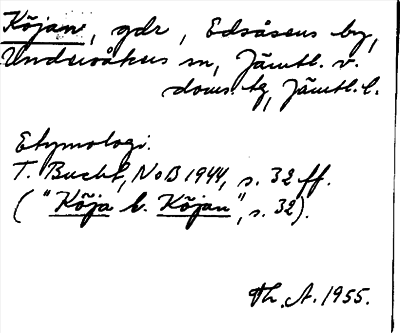 Köjan, gdr, Edsåsens by,
Undersåkers sn, Jämtl. v.
doms.tg, Jämtl. l.
Etymologi.
T. Bucht, NoB 1944, s. 32 ff.
("Köja l. Köjan", s. 32).
Th. A. 1955.